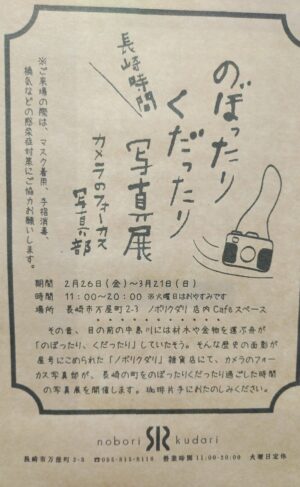 のぼったり
くだったり
長崎時間
写真展
カメラのフォーカス
写真部
※ご来場の際は、マスク着用、手指消毒、
換気などの感染症対策にご協力お願いします。
期間 2月26日(金)〜3月21日(日)
時間 11:00〜20:00 ※火曜日はおやすみです
場所 長崎市万屋町2-3 ノボリクダリ 店内Cafeスペース
その昔、目の前の中島川には材木や金物を運ぶ舟が
「のぼったり、くだったり」していたそう。そんな歴史の面影が
屋号にこめられた「ノボリクダリ」雑貨店にて、カメラのフォー
カス写真部が、長崎の町をのぼったりくだったり過ごした時間
の写真展を開催します。珈琲片手におたのしみください。
nobori kudari
長崎市万屋町2-3 営業時間 11:00-20:00 火曜日定休